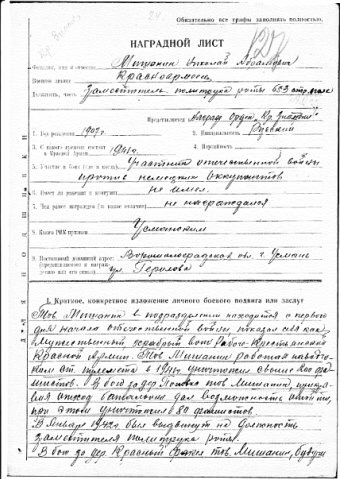 Обязательно все графы заполнять полностью.
НАГРАДНОЙ ЛИСТ
Фамилия, имя и отчество Мишанин Николай
Военное звание Красноармеец
Должность, часть Заместитель политрука роты 683 стр. полк
Представляется Наград. Орден. Кр. Знамени
1. Год рождения 1907 г. 2. Национальность Русский
3. С какого времени состоит в Красной Армии 1941 г. 4. Партийность
5. Участие в боях (где и когда) Участник отечественной войны
против немецких оккупантов
6. Имеет ли ранения и контузии не имел.
7. Чем ранее награжден (за какие отличия) не награждался
8. Каким РВК призван Усманским
9. Постоянный домашний адрес: Ворошиловградская обл. г. Усмань
(представляемого к награждению или его семьи) ул.
I. Краткое, конкретное изложение личного боевого подвига или заслуг
Тов Мишанин в подразделении находится с первого
дня начала отечественной войны, показал себя как
мужественный храбрый воин Рабоче-Крестьянской
Красной Армии. Тов Мишанин работая наводчи-
ком ст. пулемета в 1941 г уничтожил свыше 200 фа-
шистов. В бою за дер. тов Мишанин, прикры-
вая отход батальона дал возможность отойти,
при этом уничтожил 80 фашистов.
В Январе 1942 г был выдвинут на должность
заместителя политрука роты.
В бою за дер. Красной тов. Мишанин, будучи